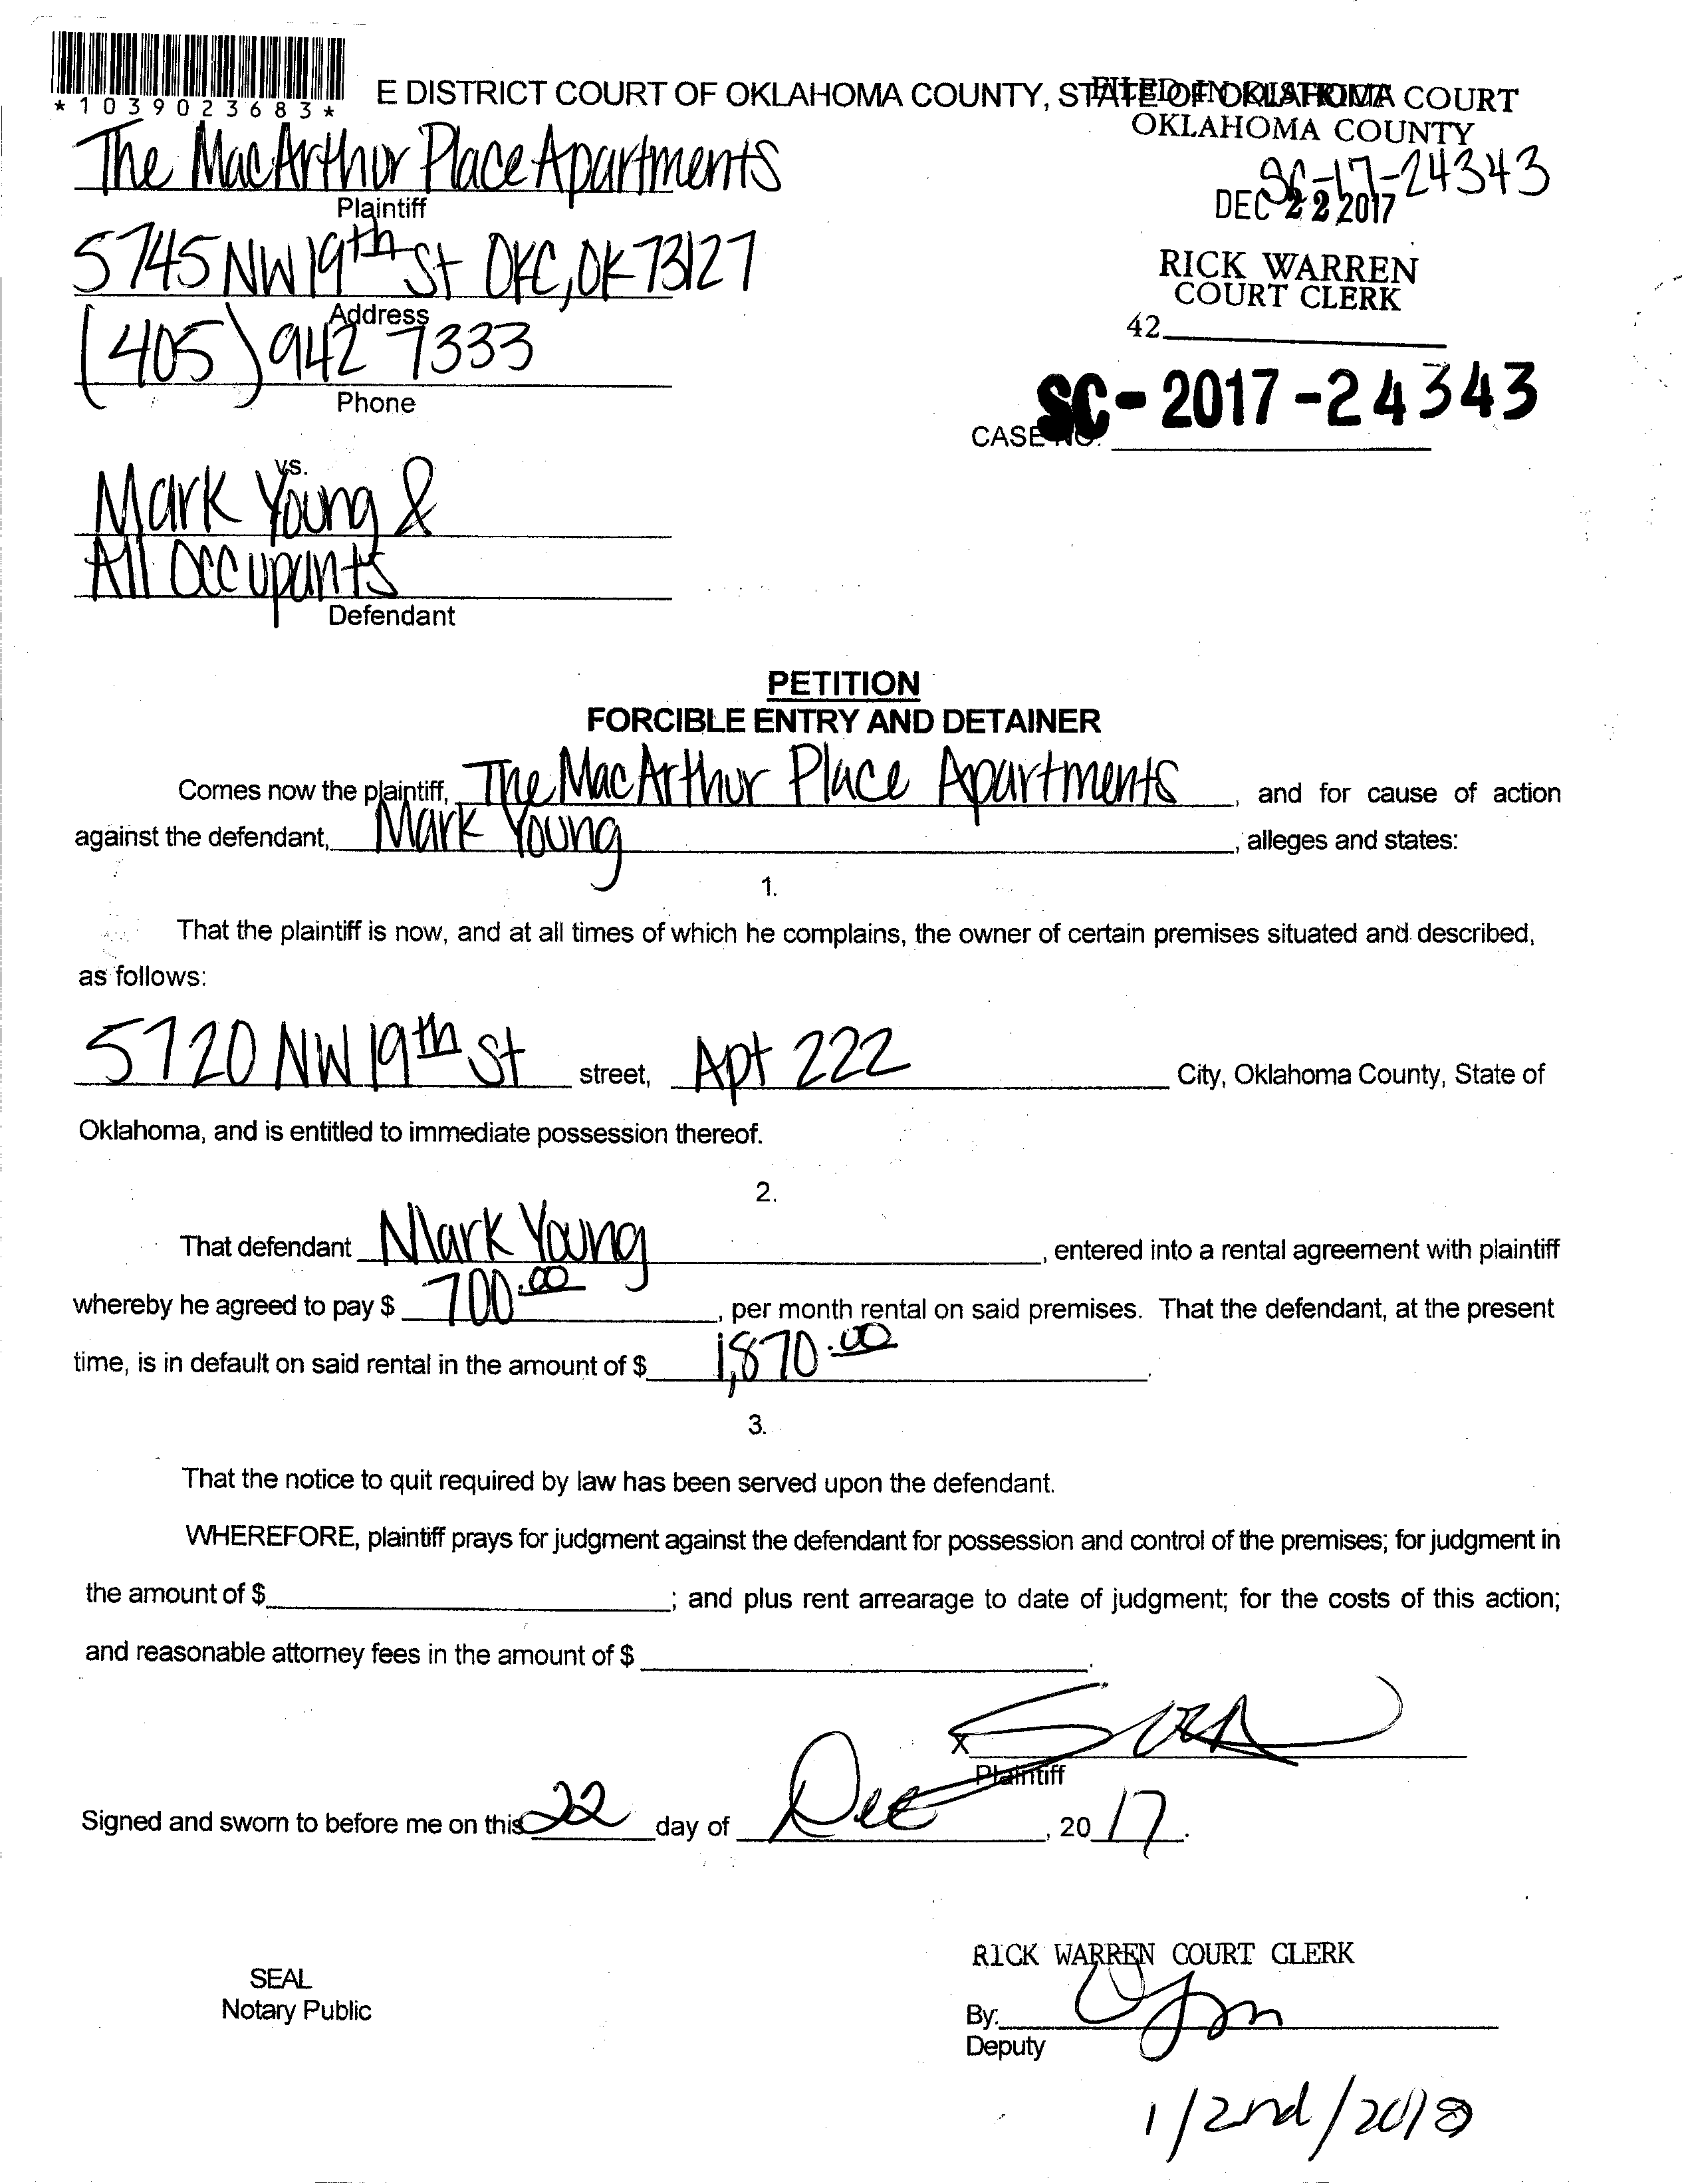 *1039023683*
E DISTRICT COURT OF OKLAHOMA COUNTY, STATE OF OKLAHOMA
FILED IN DISTRICT COURT
OKLAHOMA COUNTY
The MacArthur Place Apartments
SC-17-24343
Plaintiff
DEC 22 2017
5745 NW 19th St OKC, OK 73127
RICK WARREN
COURT CLERK
Address
42
(405) 942 7333
Phone
SC-2017-24343
CASE NO.
vs.
Mark Young &
All Occupants
Defendant
PETITION
FORCIBLE ENTRY AND DETAINER
Comes now the plaintiff, The MacArthur Place Apartments, and for cause of action
against the defendant, Mark Young, alleges and states:
1.
That the plaintiff is now, and at all times of which he complains, the owner of certain premises situated and described,
as follows:
5720 NW 19th St street, Apt 222 City, Oklahoma County, State of
Oklahoma, and is entitled to immediate possession thereof.
2.
That defendant Mark Young, entered into a rental agreement with plaintiff
whereby he agreed to pay $ 700.00, per month rental on said premises. That the defendant, at the present
time, is in default on said rental in the amount of $ 1,870.00.
3.
That the notice to quit required by law has been served upon the defendant.
WHEREFORE, plaintiff prays for judgment against the defendant for possession and control of the premises; for judgment in
the amount of $ ; and plus rent arrearage to date of judgment; for the costs of this action;
and reasonable attorney fees in the amount of $ .
x
Plaintiff
Signed and sworn to before me on this 22 day of Dec, 20 17.
RICK WARREN COURT CLERK
SEAL
Notary Public
By:
Deputy
1/2nd/2018